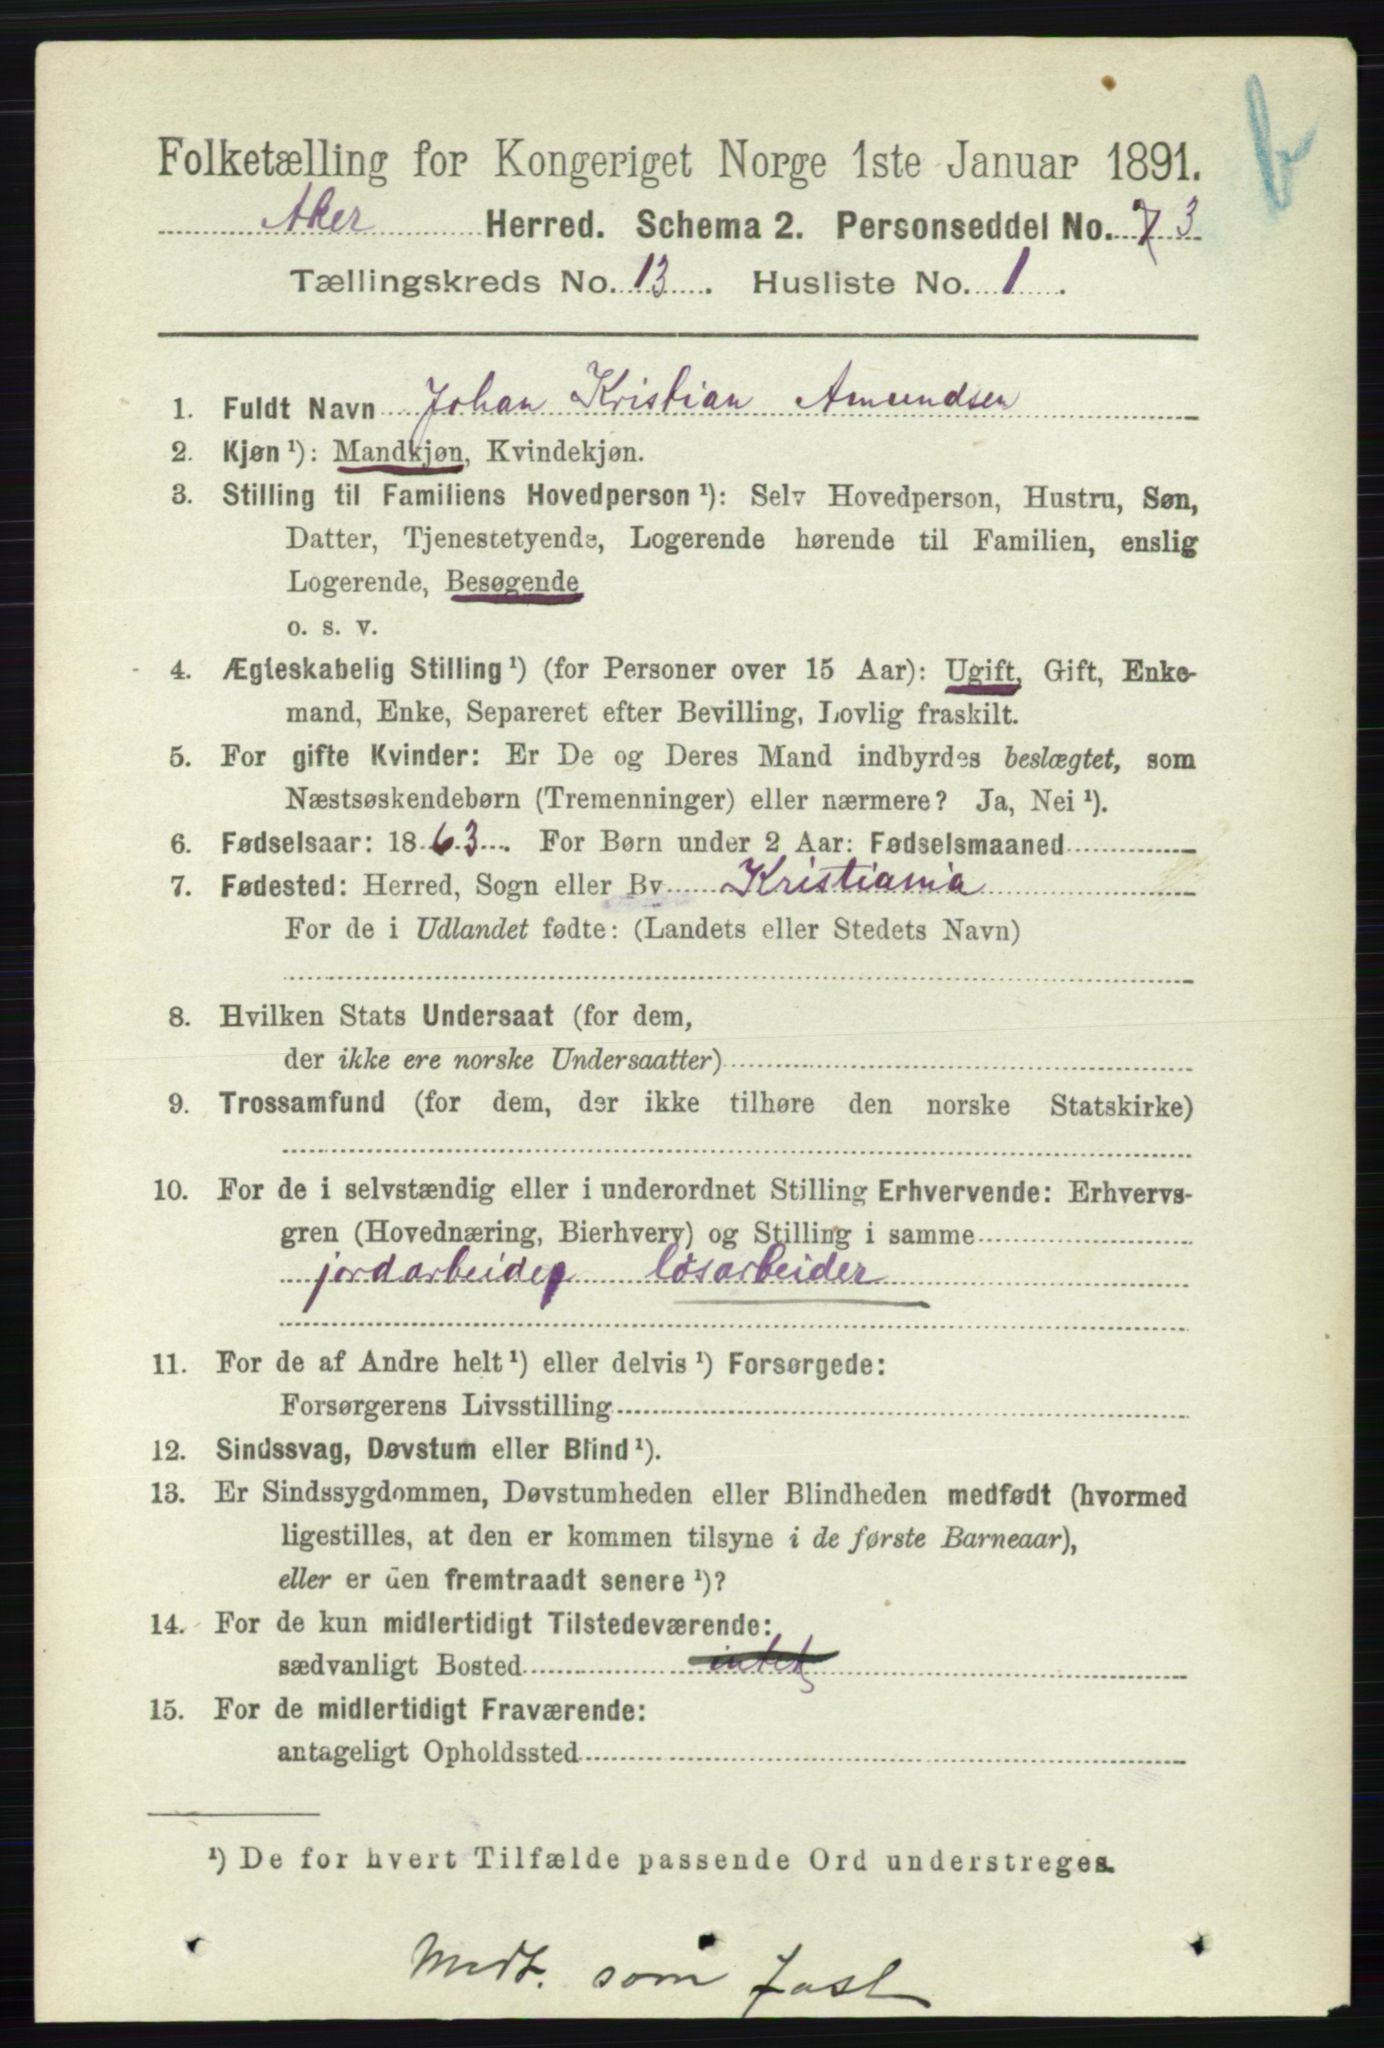 b
Folketælling for Kongeriget Norge 1ste Januar 1891.
Aker Herred. Schema 2. Personseddel No. 7 3
Tællingskreds No. 13. Husliste No. 1.
1. Fuldt Navn Johan Kristian Amundsen
2. Kjøn ¹): Mandkjøn, Kvindekjøn.
3. Stilling til Familiens Hovedperson ¹): Selv Hovedperson, Hustru, Søn,
Datter, Tjenestetyende, Logerende hørende til Familien, enslig
Logerende, Besøgende
o. s. v.
4. Ægteskabelig Stilling ¹) (for Personer over 15 Aar): Ugift, Gift, Enke-
mand, Enke, Separeret efter Bevilling, Lovlig fraskilt.
5. For gifte Kvinder: Er De og Deres Mand indbyrdes beslægtet, som
Næstsøskendebørn (Tremenninger) eller nærmere? Ja, Nei ¹).
6. Fødselsaar: 1863. For Børn under 2 Aar: Fødselsmaaned
7. Fødested: Herred, Sogn eller By Kristiania
For de i Udlandet fødte: (Landets eller Stedets Navn)
8. Hvilken Stats Undersaat (for dem,
der ikke ere norske Undersaatter)
9. Trossamfund (for dem, der ikke tilhøre den norske Statskirke)
10. For de i selvstændig eller i underordnet Stilling Erhvervende: Erhvervs-
gren (Hovednæring, Bierhverv) og Stilling i samme
jordarbeider løsarbeider
11. For de af Andre helt ¹) eller delvis ¹) Forsørgede:
Forsørgerens Livsstilling
12. Sindssvag, Døvstum eller Blind ¹).
13. Er Sindssygdommen, Døvstumheden eller Blindheden medfødt (hvormed
ligestilles, at den er kommen tilsyne i de første Barneaar),
eller er den fremtraadt senere ¹)?
14. For de kun midlertidigt Tilstedeværende:
sædvanligt Bosted intet
15. For de midlertidigt Fraværende:
antageligt Opholdssted
¹) De for hvert Tilfælde passende Ord understreges.
Medt. som fast